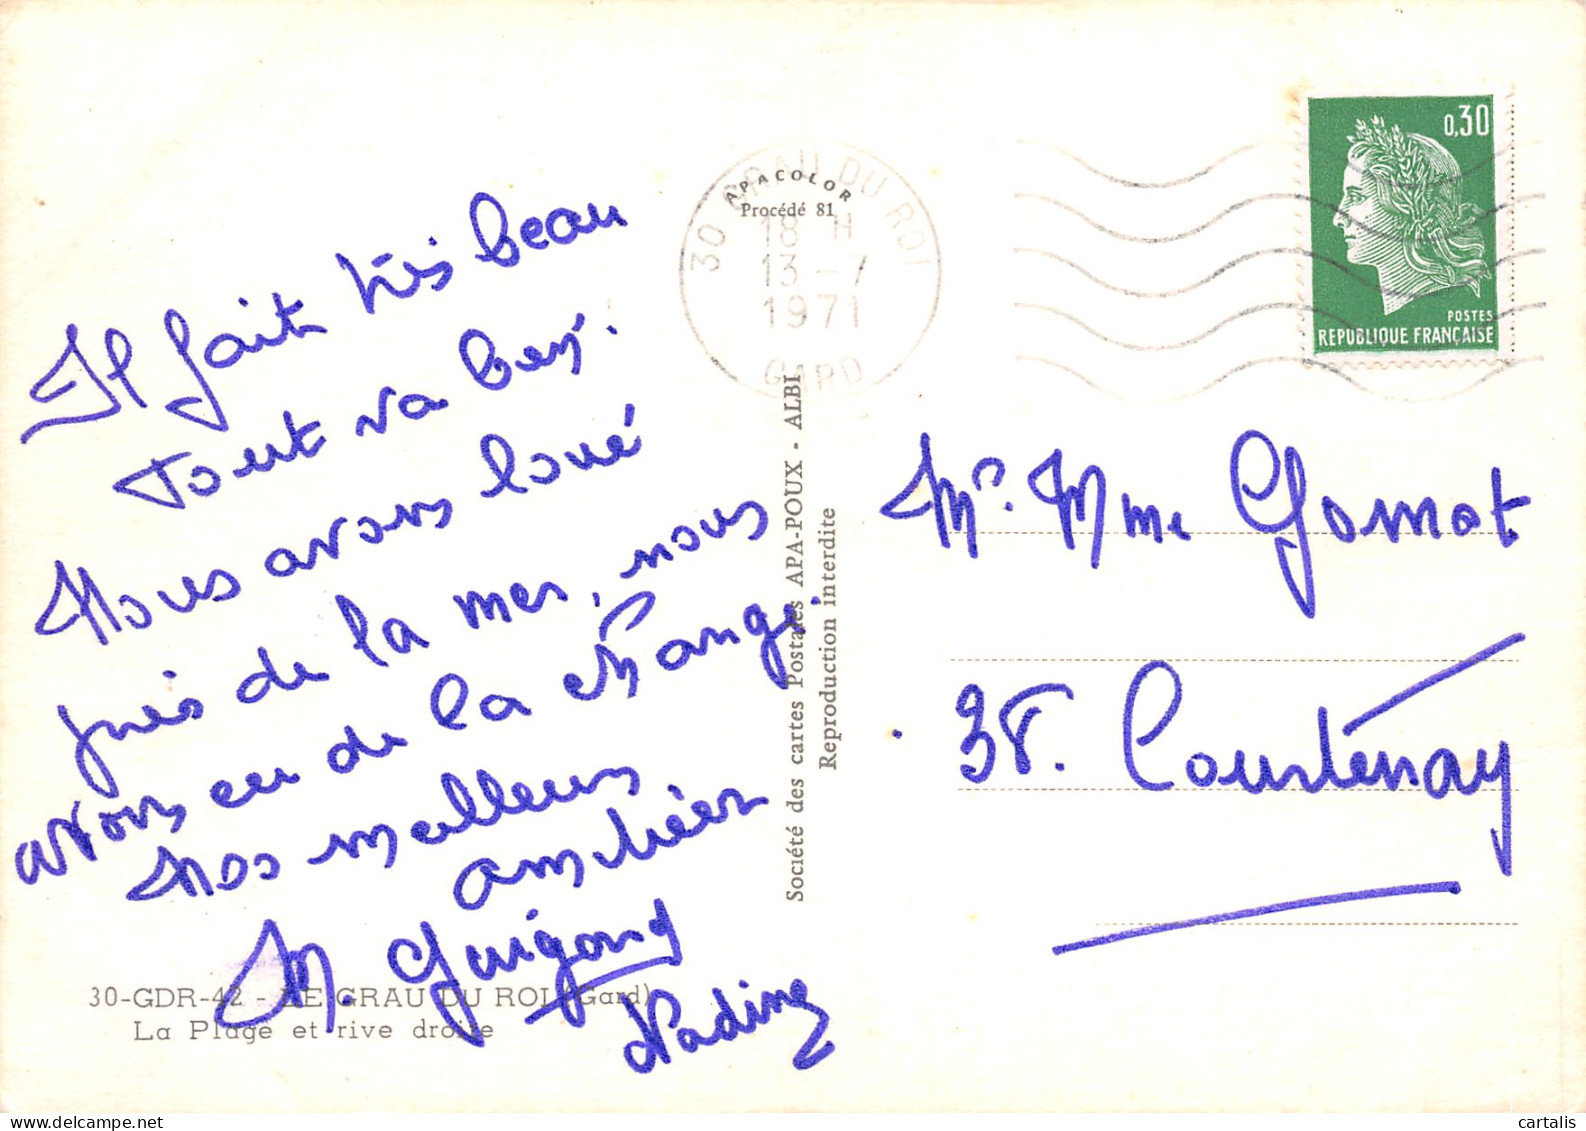 Il fait très beau
Tout va bien.
Nous avons loué
près de la mer, nous
avons eu de la chance.
Nos meilleurs
amitiés
M. Guigond
Nadine
30-GDR-42 - LE GRAU DU ROI (Gard)
La Plage et rive droite
APACOLOR
Procédé 81
30 GRAU DU ROI
18 H
13 - 7
1971
GARD
Société des cartes Postales APA-POUX - ALBI
Reproduction interdite
0,30
POSTES
REPUBLIQUE FRANÇAISE
Mr. Mme Gomot
38. Courtenay
cartalis